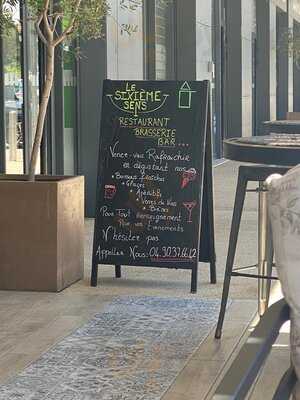 Le
SIXIÈME
SENS
RESTAURANT
BRASSERIE
BAR...
Venez-vous Rafraîchir
en dégustant nos
* Boissons fraîches *
* Glaces *
* Apéritifs *
Verres de Vins
* Bières *
Pour Tout Renseignement
Pour vos Evènements
N'hésiter pas
Appellez Nous: 04.90.37.66.12